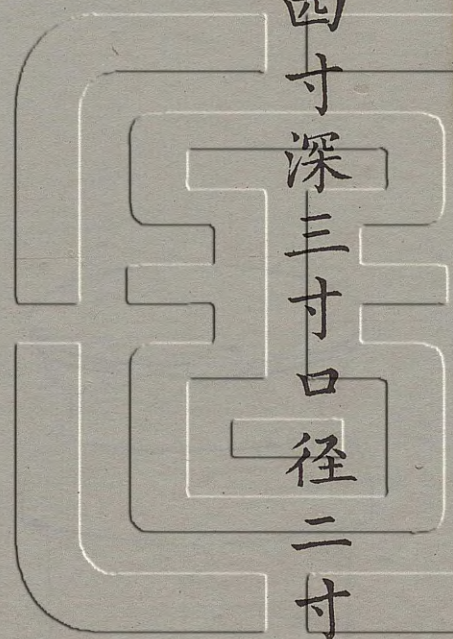 四寸深三寸口径二寸